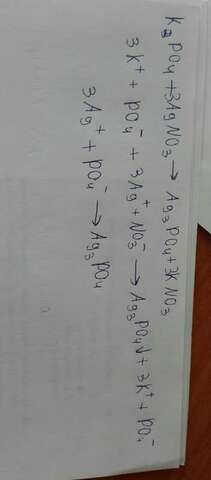 K3PO4 + 3AgNO3 → Ag3PO4 + 3KNO3
3K⁺ + PO4⁻ + 3Ag⁺ + NO3⁻ → Ag3PO4↓ + 3K⁺ + PO4⁻
3Ag⁺ + PO4⁻ → Ag3PO4